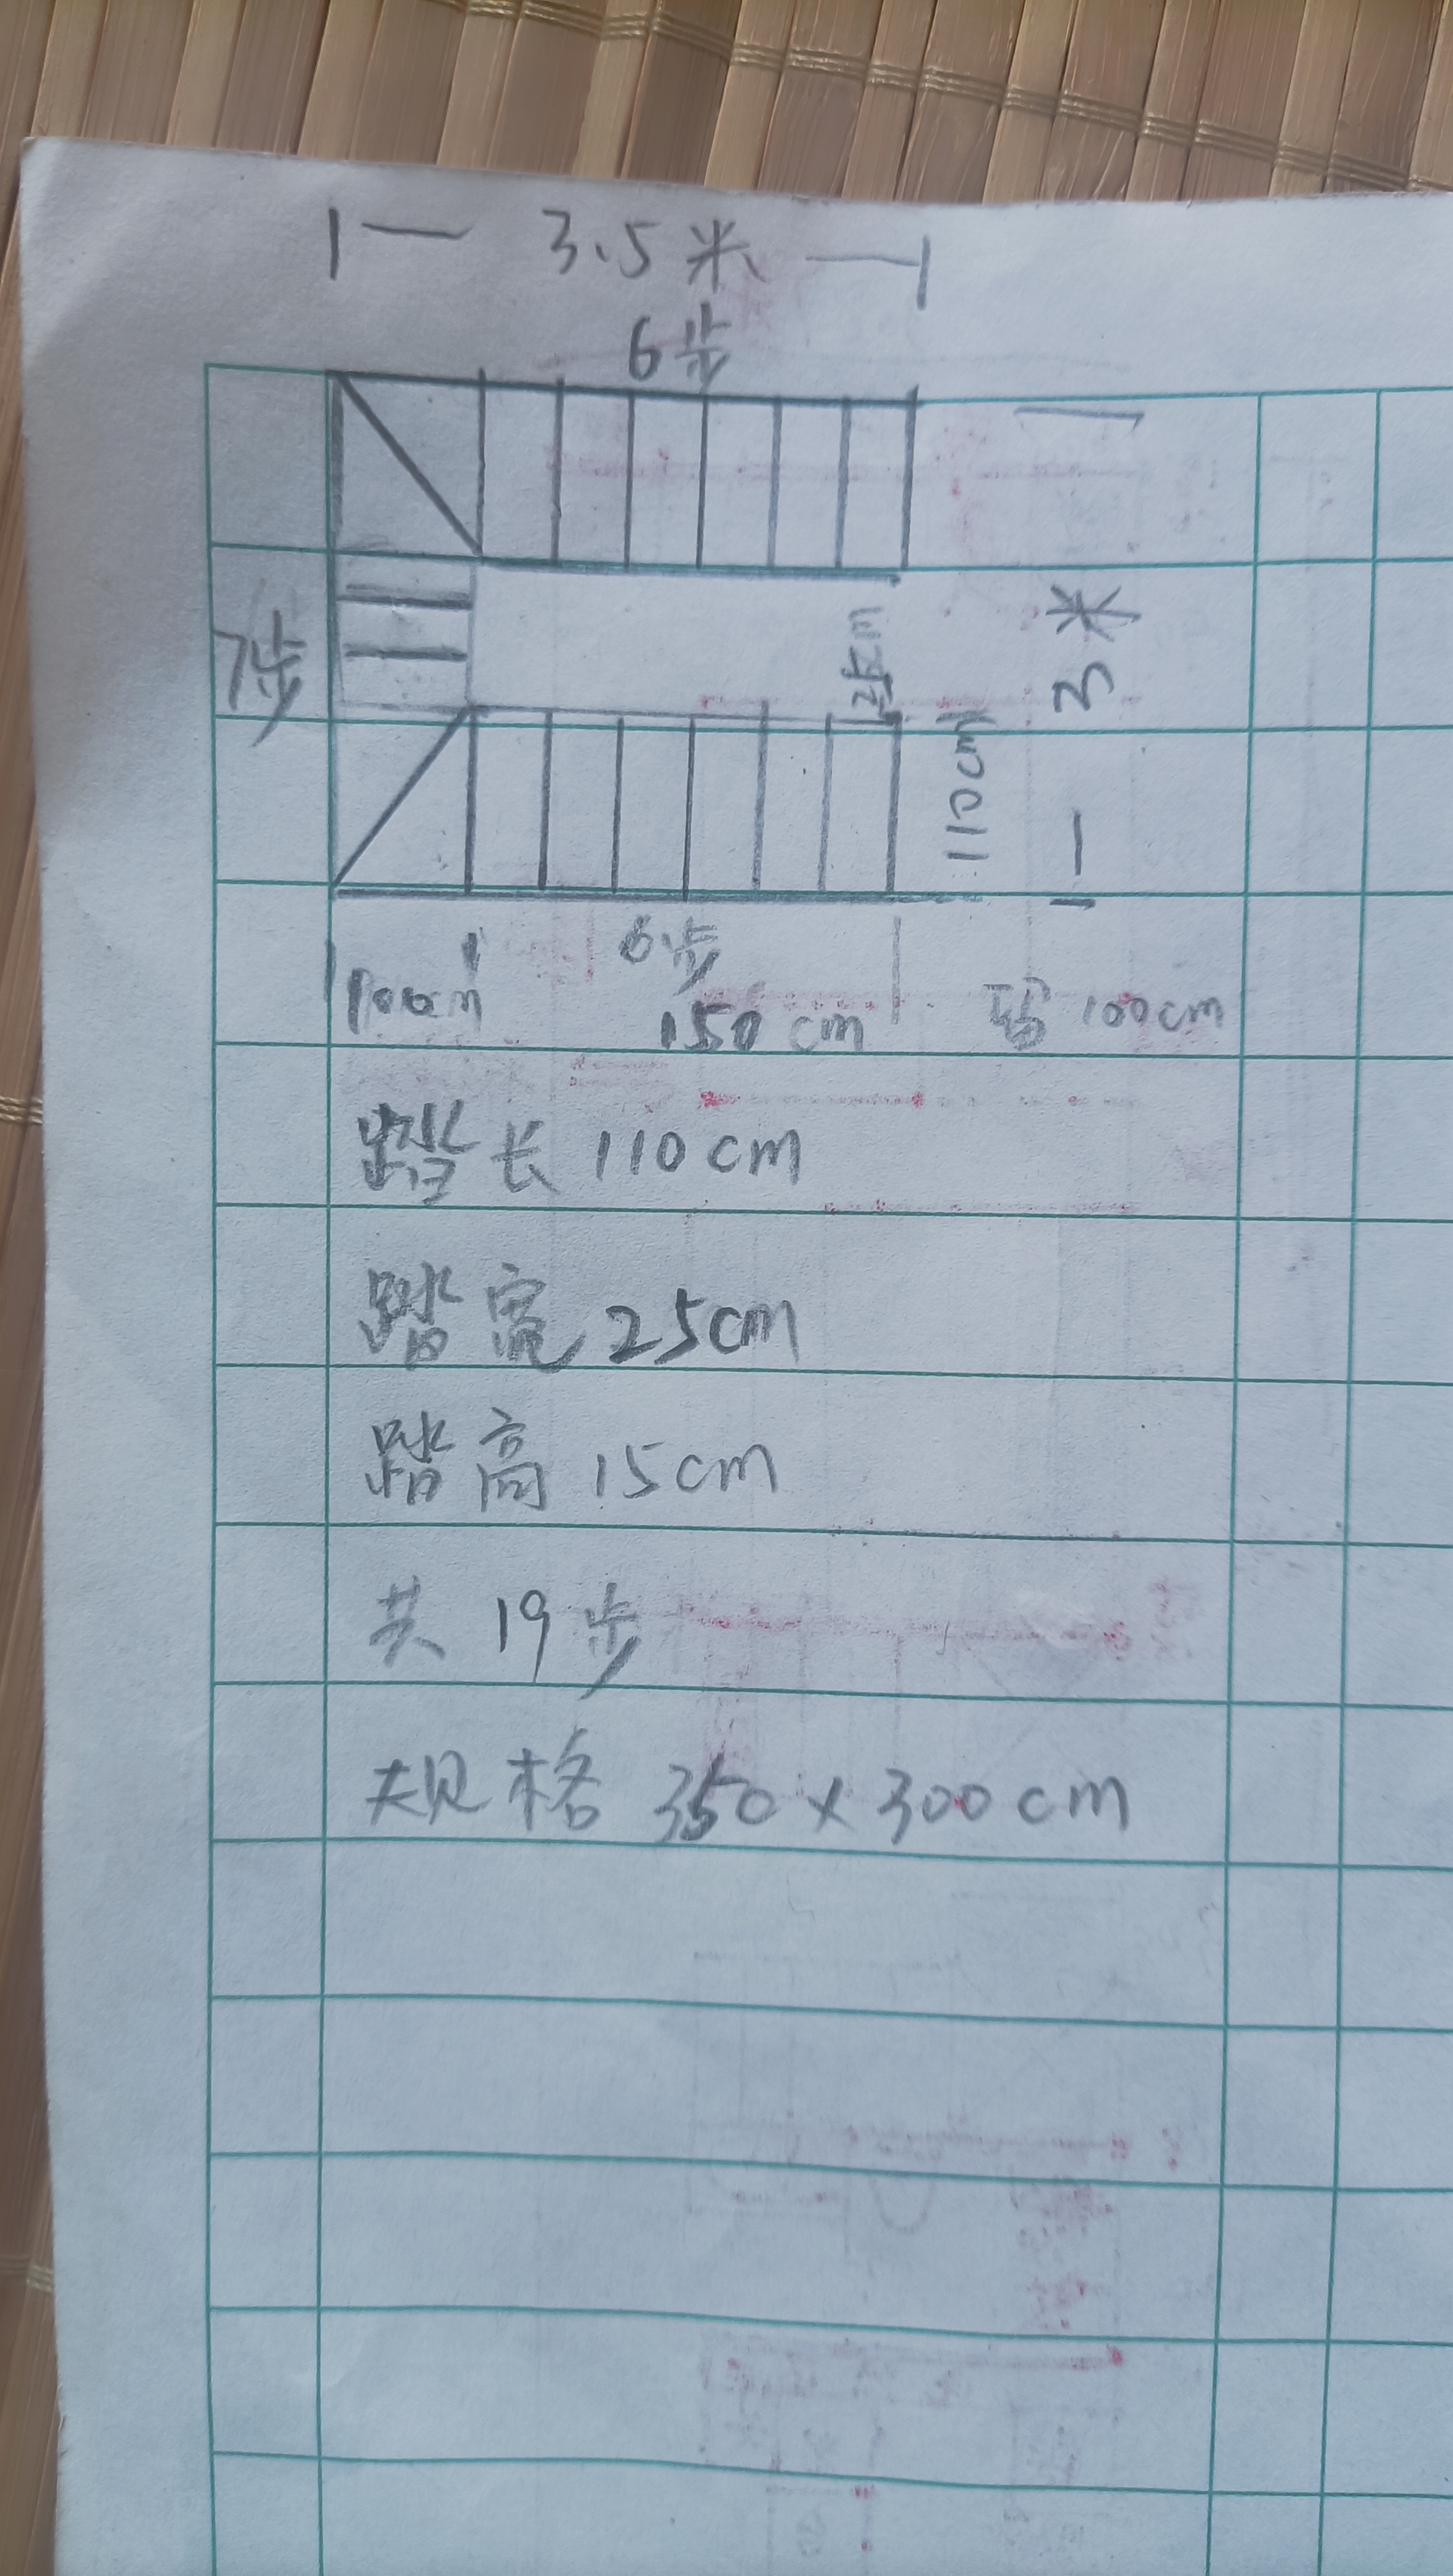 3.5米
6步
7步
3米
110cm
6步
100cm
150cm
100cm
踏长 110cm
踏宽 25cm
踏高 15cm
共 19步
规格 350×300cm